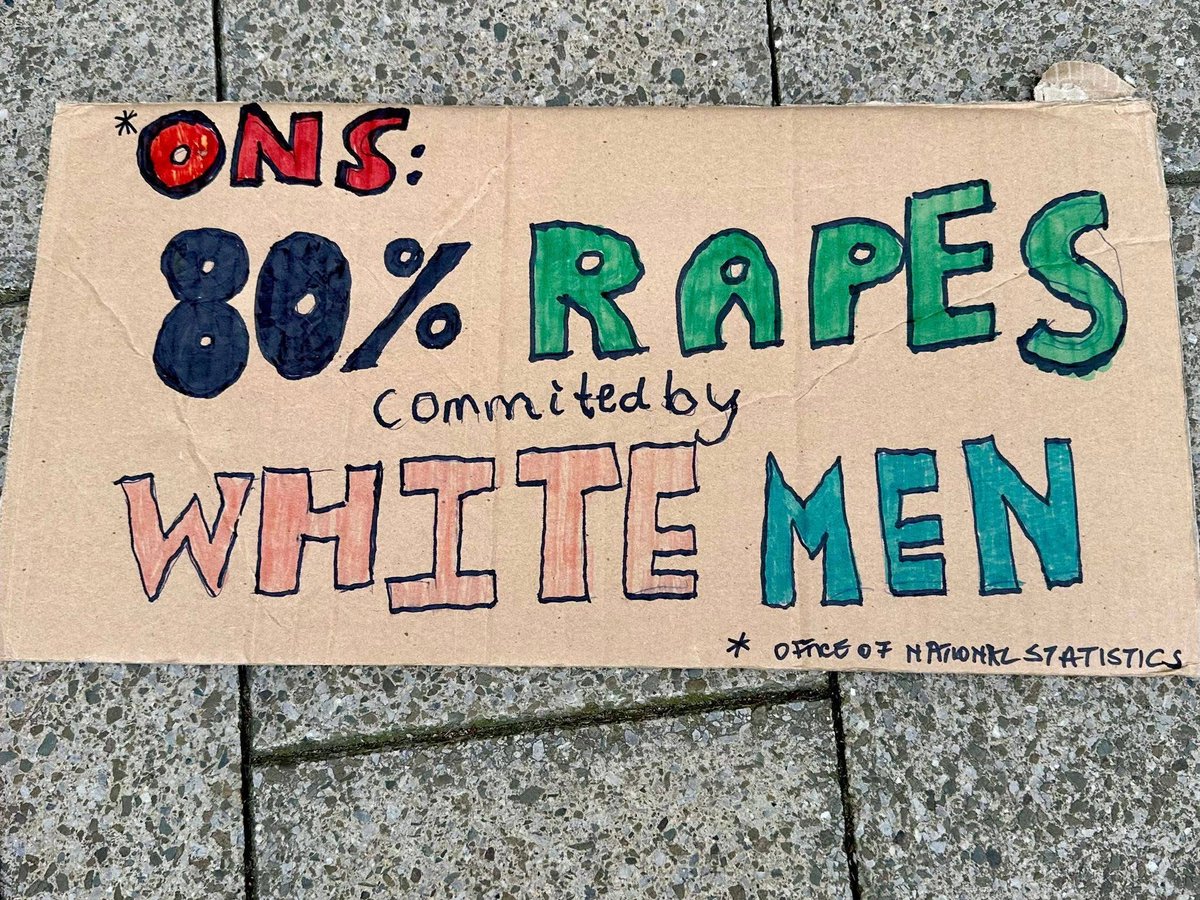 *ONS:
80% RAPES
commited by
WHITE MEN
* OFFICE OF NATIONAL STATISTICS